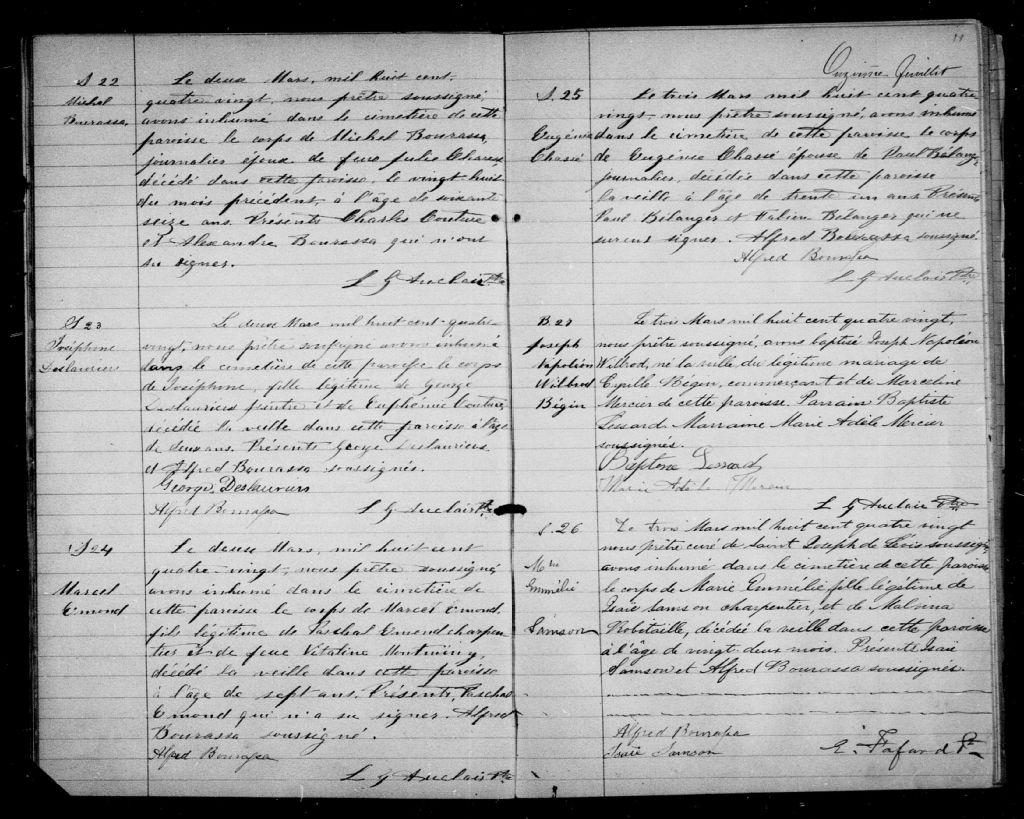 S 22
Michel
Bourassa
Le deux Mars, mil huit cent-
quatre vingt, nous prêtre soussigné
avons inhumé dans le cimetière de cette
paroisse le corps de Michel Bourassa,
journalier époux de feue Julie
décédé dans cette paroisse, le vingt huit
du mois précédent, à l'âge de soixante
seize ans. Présents Charles Couture
et Alexandre Bourassa qui n'ont
su signer.
L G Auclair Ptre
S 23
Joséphine
Deslauriers
Le deux Mars mil huit cent-quatre-
vingt, nous prêtre soussigné avons inhumé
dans le cimetière de cette paroisse le corps
de Joséphine, fille légitime de George
Deslauriers peintre et de Euphémie Couture,
décédée la veille dans cette paroisse à l'âge
de deux ans. Présents George Deslauriers
et Alfred Bourassa soussignés.
George Deslauriers
Alfred Bourassa L G Auclair Ptre
S 24
Marcel
Emond
Le deux Mars, mil huit cent
quatre-vingt, nous prêtre soussigné,
avons inhumé dans le cimetière de
cette paroisse le corps de Marcel Emond,
fils légitime de Paschal Emond charpen
tier et de feue Vitaline Montminy,
décédé la veille dans cette paroisse
à l'âge de sept ans. Présents, Paschal
Emond qui n'a su signer. Alfred
Bourassa soussigné.
Alfred Bourassa
L G Auclair Ptre
11
Onzième feuillet
S. 25
Eugénie
Chassé
Le trois Mars mil huit cent quatre
vingt, nous prêtre soussigné, avons inhumé
dans le cimetière de cette paroisse le corps
de Eugénie Chassé épouse de Paul Bélanger
journalier, décédée dans cette paroisse
la veille à l'âge de trent un ans Présents
Paul Bélanger et Fabien Bélanger qui ne
surent signer. Alfred Bourassa soussigné.
Alfred Bourassa
L G Auclair Ptre
B. 27
Joseph
Napoléon
Wilbrod
Bégin
Le trois Mars mil huit cent quatre vingt,
nous prêtre soussigné, avons baptisé Joseph Napoléon
Wilbrod, né la veille du légitime mariage de
Cyrille Bégin, commerçant et de Marceline
Mercier de cette paroisse. Parrain Baptiste
Lessard Marraine Marie Adèle Mercier
soussignés.
Baptiste Lessard
Marie Adèle Mercier
L G Auclair Ptre
S. 26
Mie
Emmélie
Samson
Le trois Mars mil huit cent quatre vingt
nous prêtre curé de Saint Joseph de Lévis soussigné
avons inhumé dans le cimetière de cette paroisse
le corps de Marie Emmélie, fille légitime de
Isaïe Samson charpentier, et de Malvina
Robitaille, décédée la veille dans cette paroisse
à l'âge de vingt deux mois. Présents Isaïe
Samson et Alfred Bourassa soussignés.
Alfred Bourassa
Isaïe Samson E. Fafard Ptre